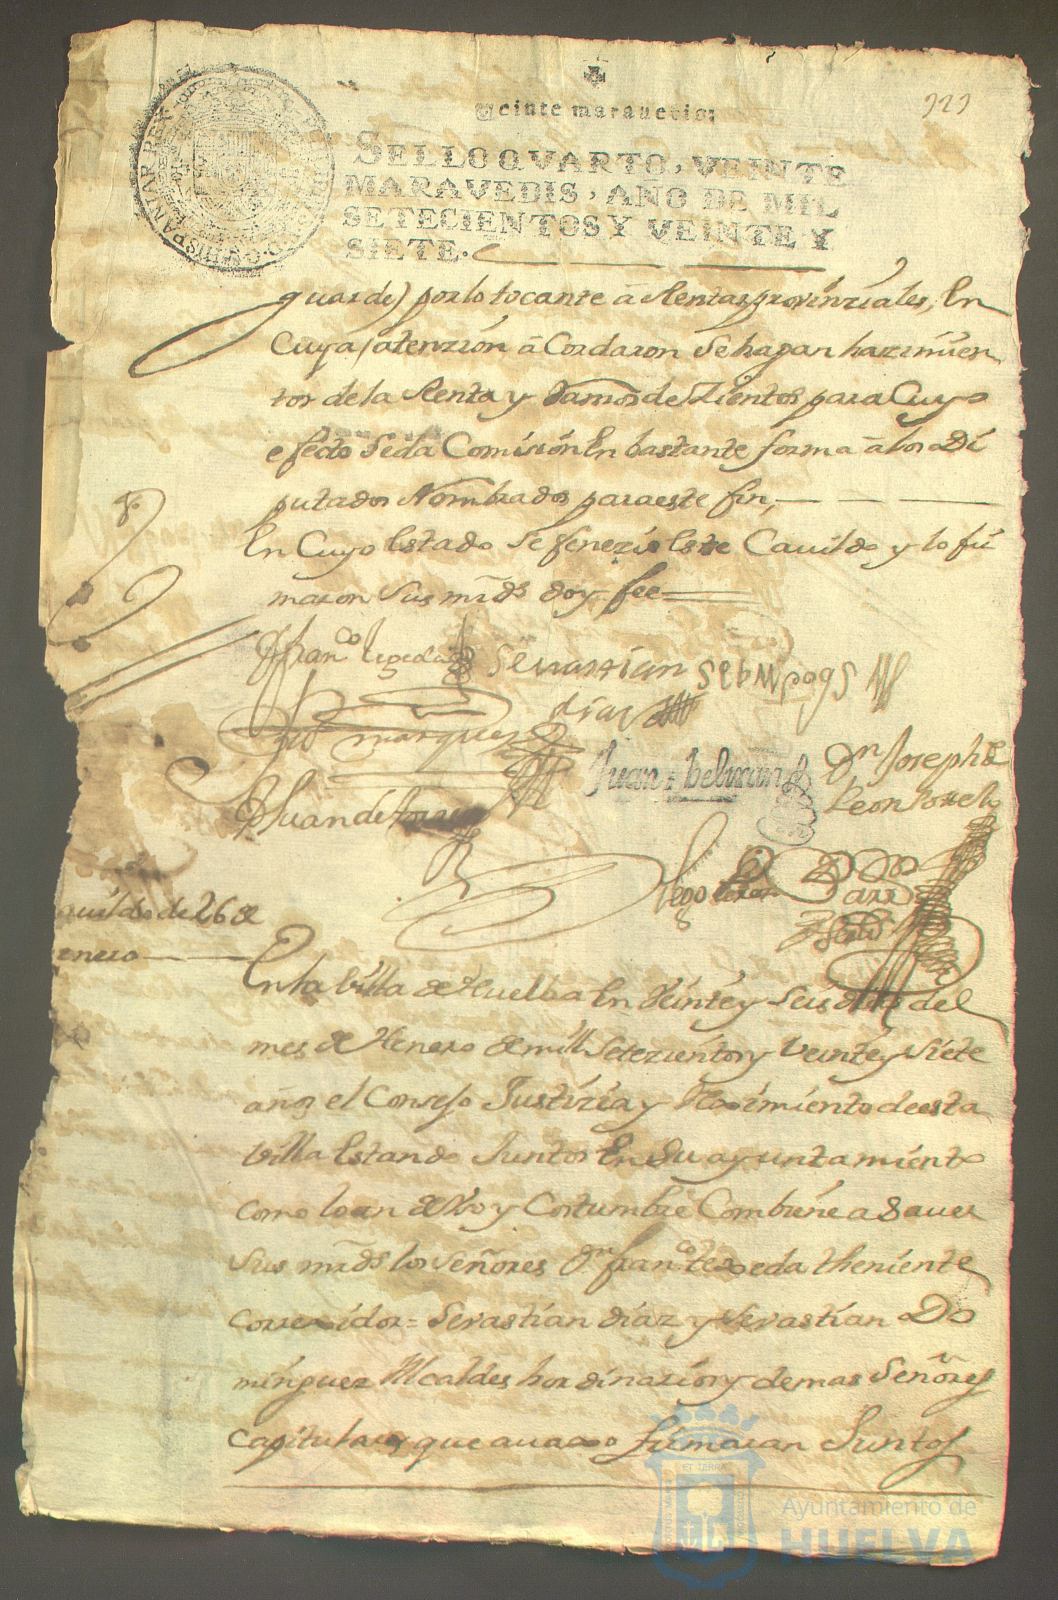 929
Veinte maravedis;
SELLO QVARTO, VEINTE
MARAVEDIS, AÑO DE MIL
SETECIENTOS Y VEINTE Y
SIETE.
guarde) por lo tocante â Rentas provinziales, En
Cuya atenzion âcordaron se hagan hazimien
tos de la Renta y Ramos de Zientos para Cuyo
efecto seda Comision En bastante forma â los Di
putados Nombrados para este fin,
En Cuyo Estado se fenezio Este Cauildo y lo fir
maron sus mrds doy fee
Franco tepeda
Sevastian
dias
marquez
Juan beltran
Dn Joseph de
Leon
Juan de
Diego
cauildo de 26 de
enero
En la villa de Huelba En Veinte y Seis dias del
mes de Henero de mill Setezientos y Veinte y Siete
años el Consejo Justizia y Reximiento de esta
villa Estando Juntos En su ayuntamiento
como lo an de Vso y Costumbre Combiene a Sauer
Sus mrds los Señores Dn franco tepeda theniente
Correxidor = Sevastian diaz y Sevastian Do
minguez Alcaldes hordinarios y demas Señores
Capitulares que auaxo firmaran Juntos
ET TERRÆ
Ayuntamiento de
HUELVA